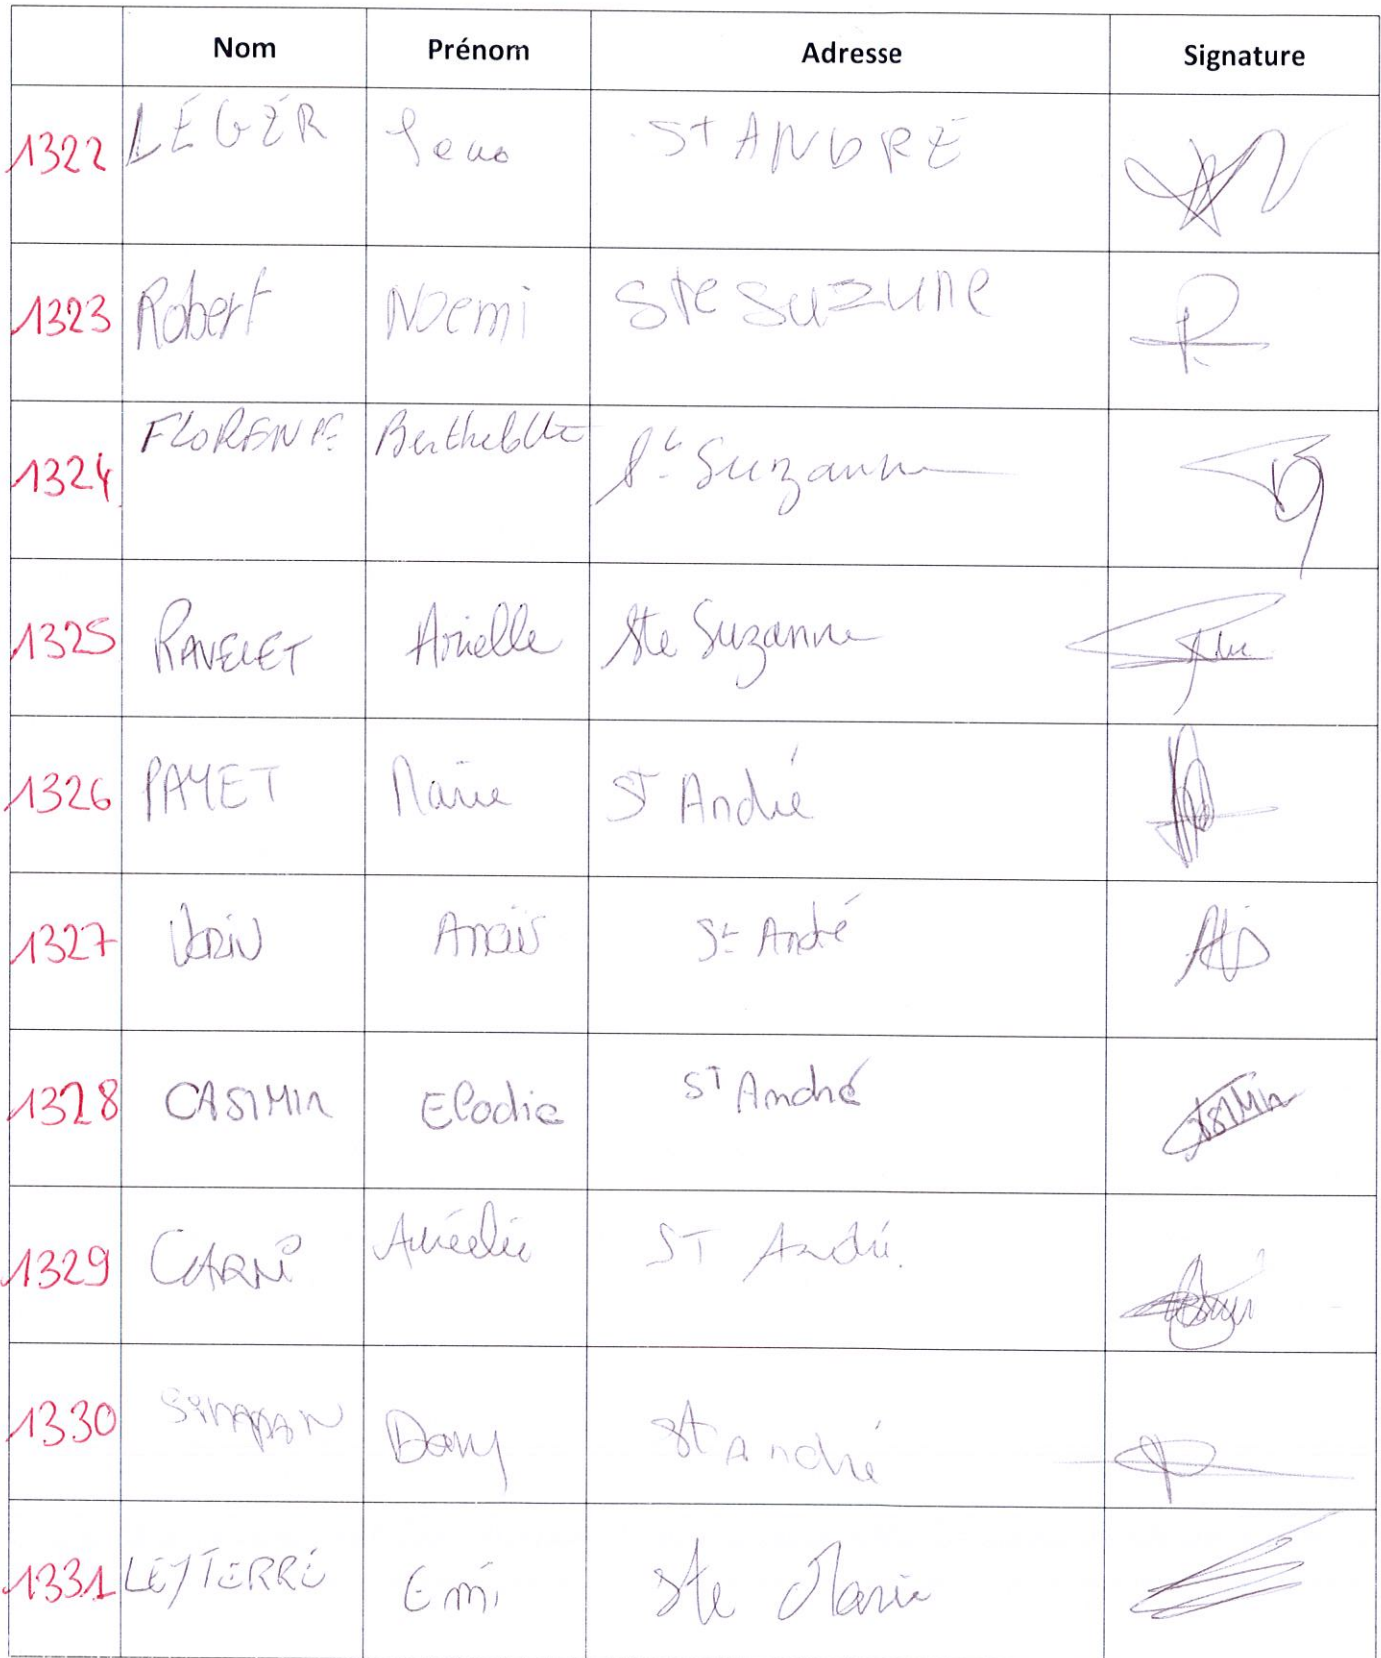 Nom Prénom Adresse Signature
1322 LÉGER ST ANDRÉ
1323 Robert Noemi Ste Suzune
1324 FLORENCE Berthelotte Ste Suzanne
1325 RAVELET Arielle Ste Suzanne
1326 PAYET Marie ST André
1327 Vorin Anaïs St André
1328 CASIMIR Elodie ST André
1329 Aurélie ST André.
1330 Dany St André
1331 Emi Ste Marie